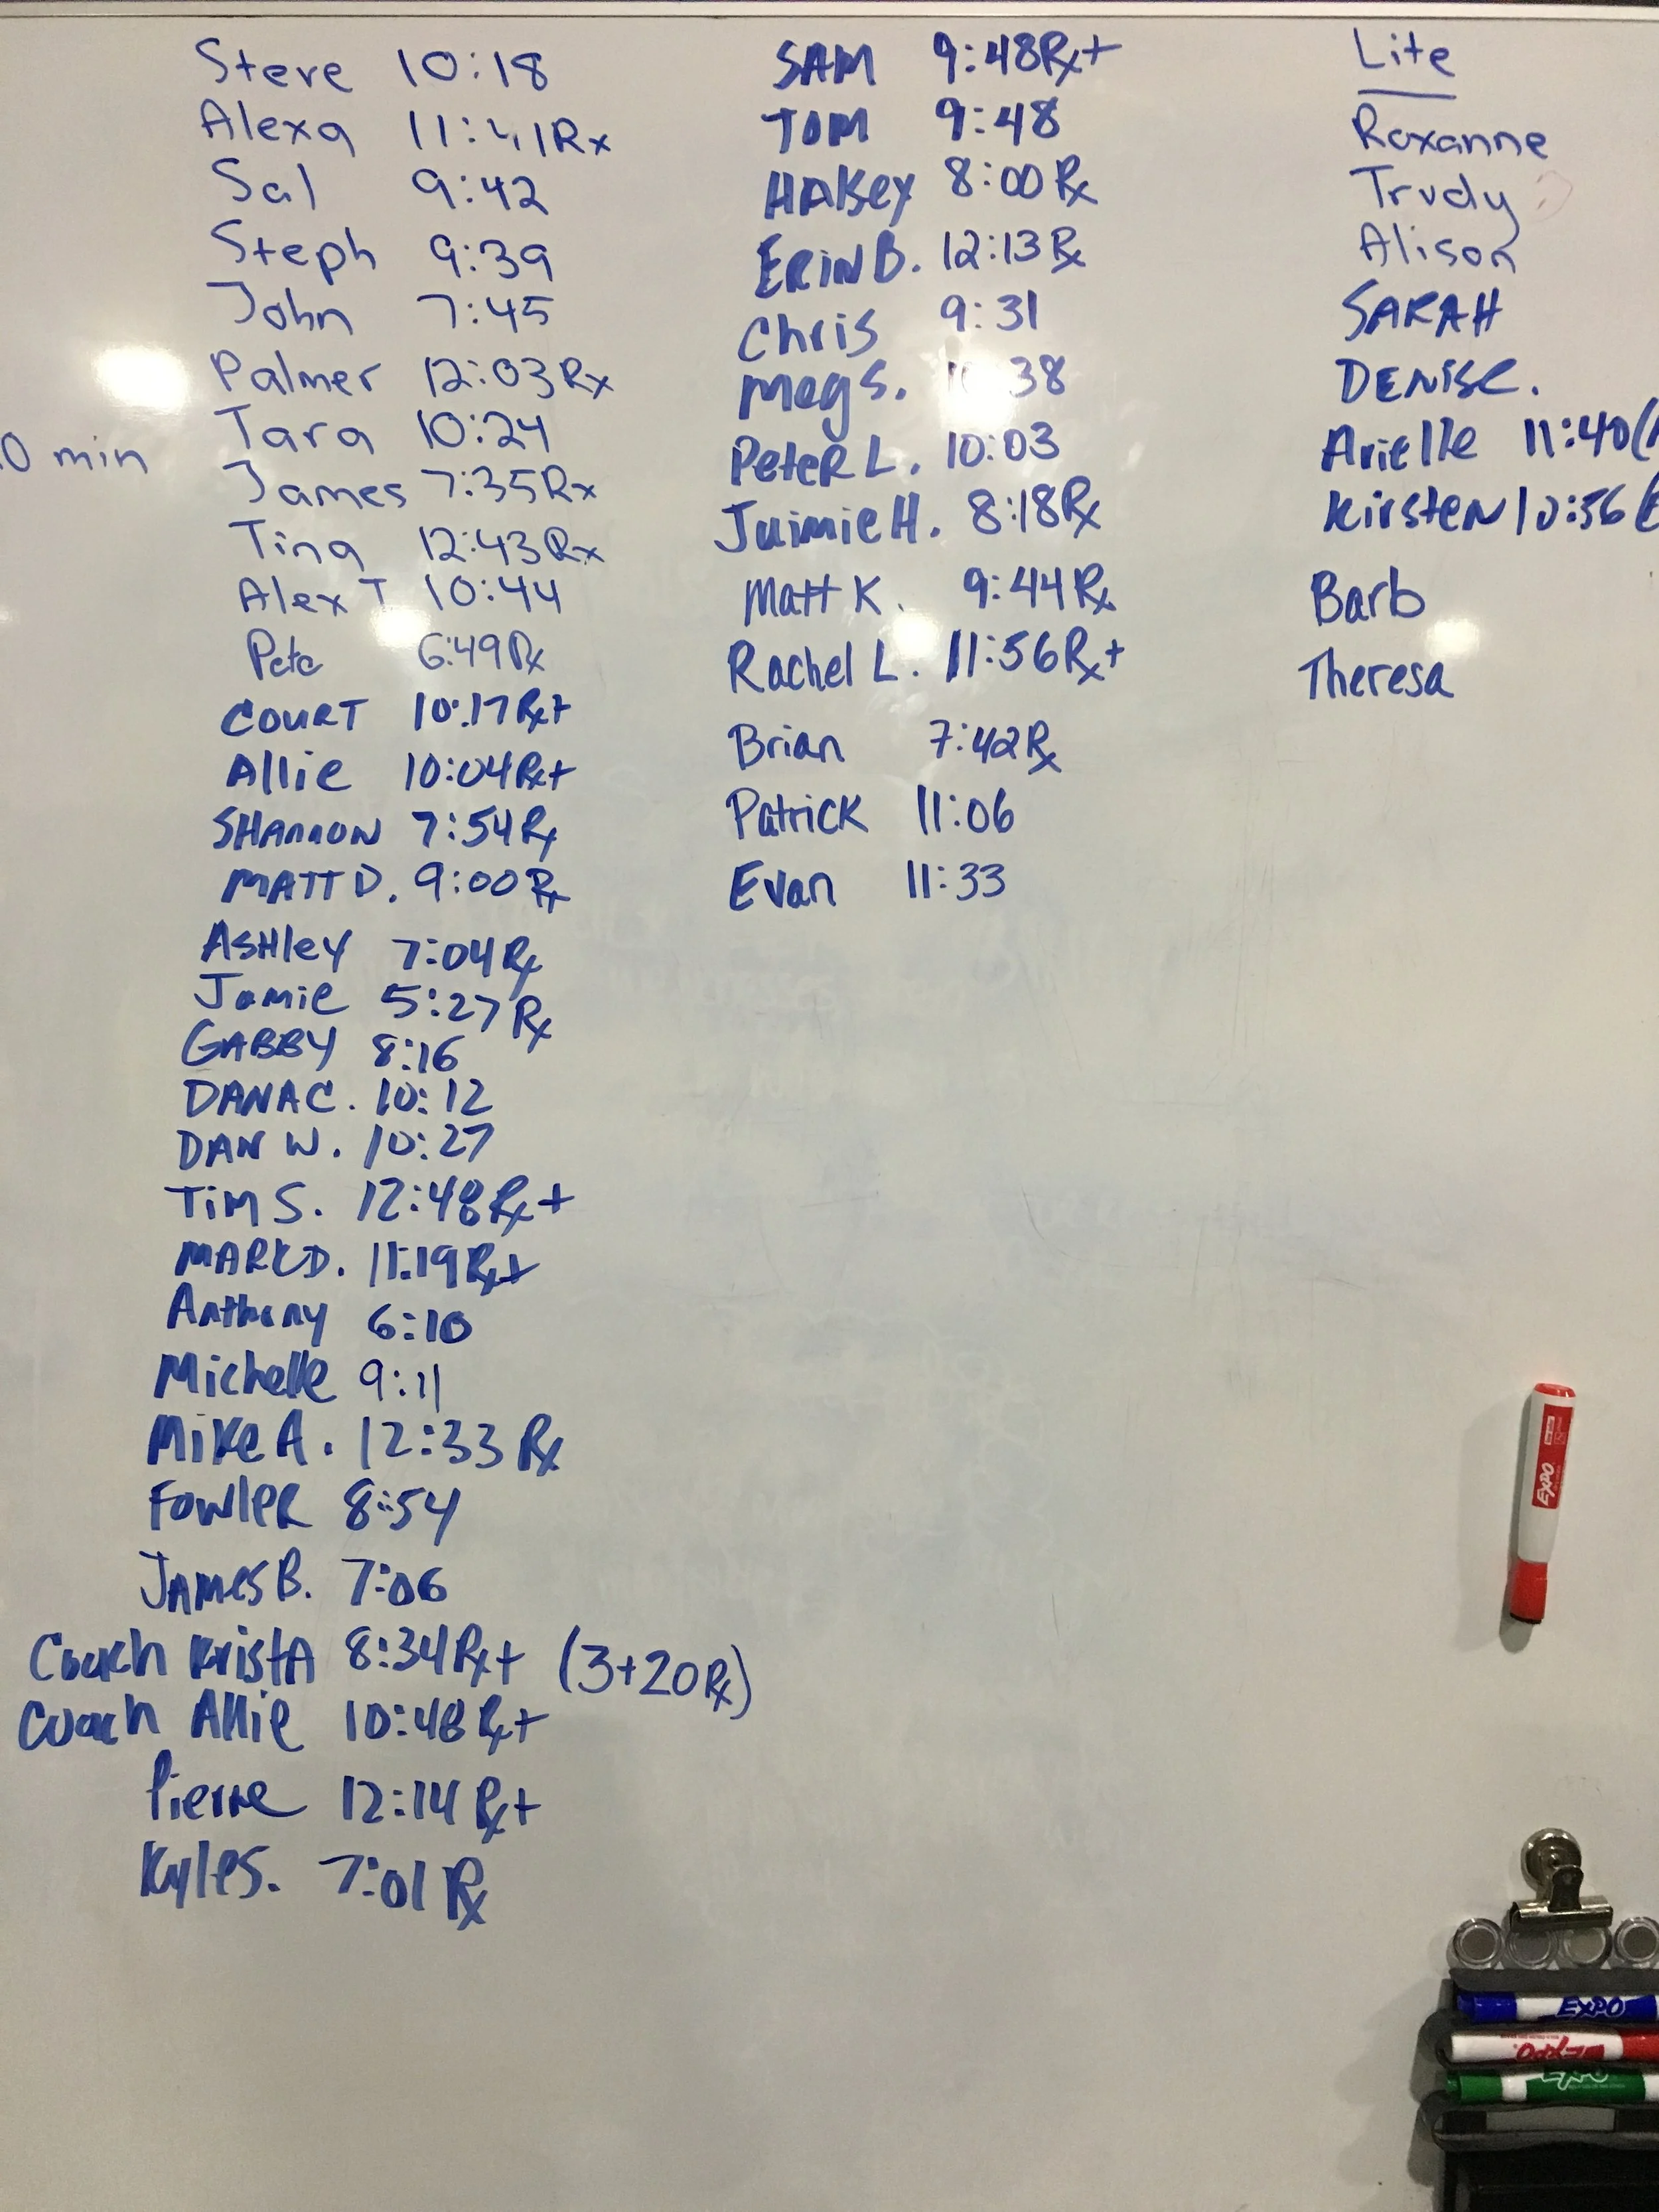 Steve 10:18
Alexa Rx
Sal 9:42
Steph 9:39
John 7:45
Palmer 12:03 Rx
Tara 10:24
0 min
James 7:35 Rx
Tina 12:43 Rx
Alex T 10:44
Pete 6:49 Rx
COURT 10:17 Rx+
Allie 10:04 Rx+
SHANNON 7:54 Rx
MATT D. 9:00 Rx
ASHleY 7:04 Rx
Jamie 5:27 Rx
GABBY 8:16
DANA C. 10:12
DAN W. 10:27
Tim S. 12:48 Rx+
MARK D. 11:19 Rx+
Anthony 6:10
Michelle 9:11
Mike A. 12:33 Rx
FowleR 8:54
JAMES B. 7:06
Coach KristA 8:34 Rx+ (3+20 Rx)
Coach Allie 10:48 Rx+
Pierre 12:14 Rx+
Kyle S. 7:01 Rx
SAM 9:48 Rx+
TOM 9:48
HALSEY 8:00 Rx
ERIN B. 12:13 Rx
Chris 9:31
Meg S.
PeteR L. 10:03
Juimie H. 8:18 Rx
Matt K. 9:44 Rx
Rachel L. 11:56 Rx+
Brian 7:42 Rx
Patrick 11:06
Evan 11:33
Lite
Roxanne
Trudy
Alison
SARAH
DENISE.
Arielle 11:40 (
KirsteN 10:56 (
Barb
Theresa
EXPO
EXPO
EXPO
EXPO